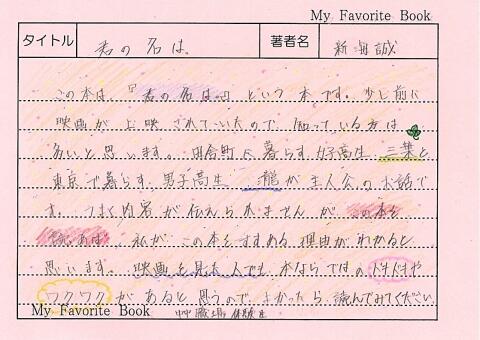 My Favorite Book
タイトル 君の名は。 著者名 新海誠
この本は、『君の名は。』という本です。少し前に
映画が上映されていたので知っている方は
多いと思います。田舎町に暮らす女子高生 三葉と
東京で暮らす、男子高生 瀧が主人公のお話で
す。うまく内容が伝えられませんが この本を
読めば、私がこの本をすすめる理由がわかると
思います。映画を見た人でも、本ならではのドキドキや
ワクワクがあると思うので、よかったら、読んでみてください
My Favorite Book 中中職場体験生